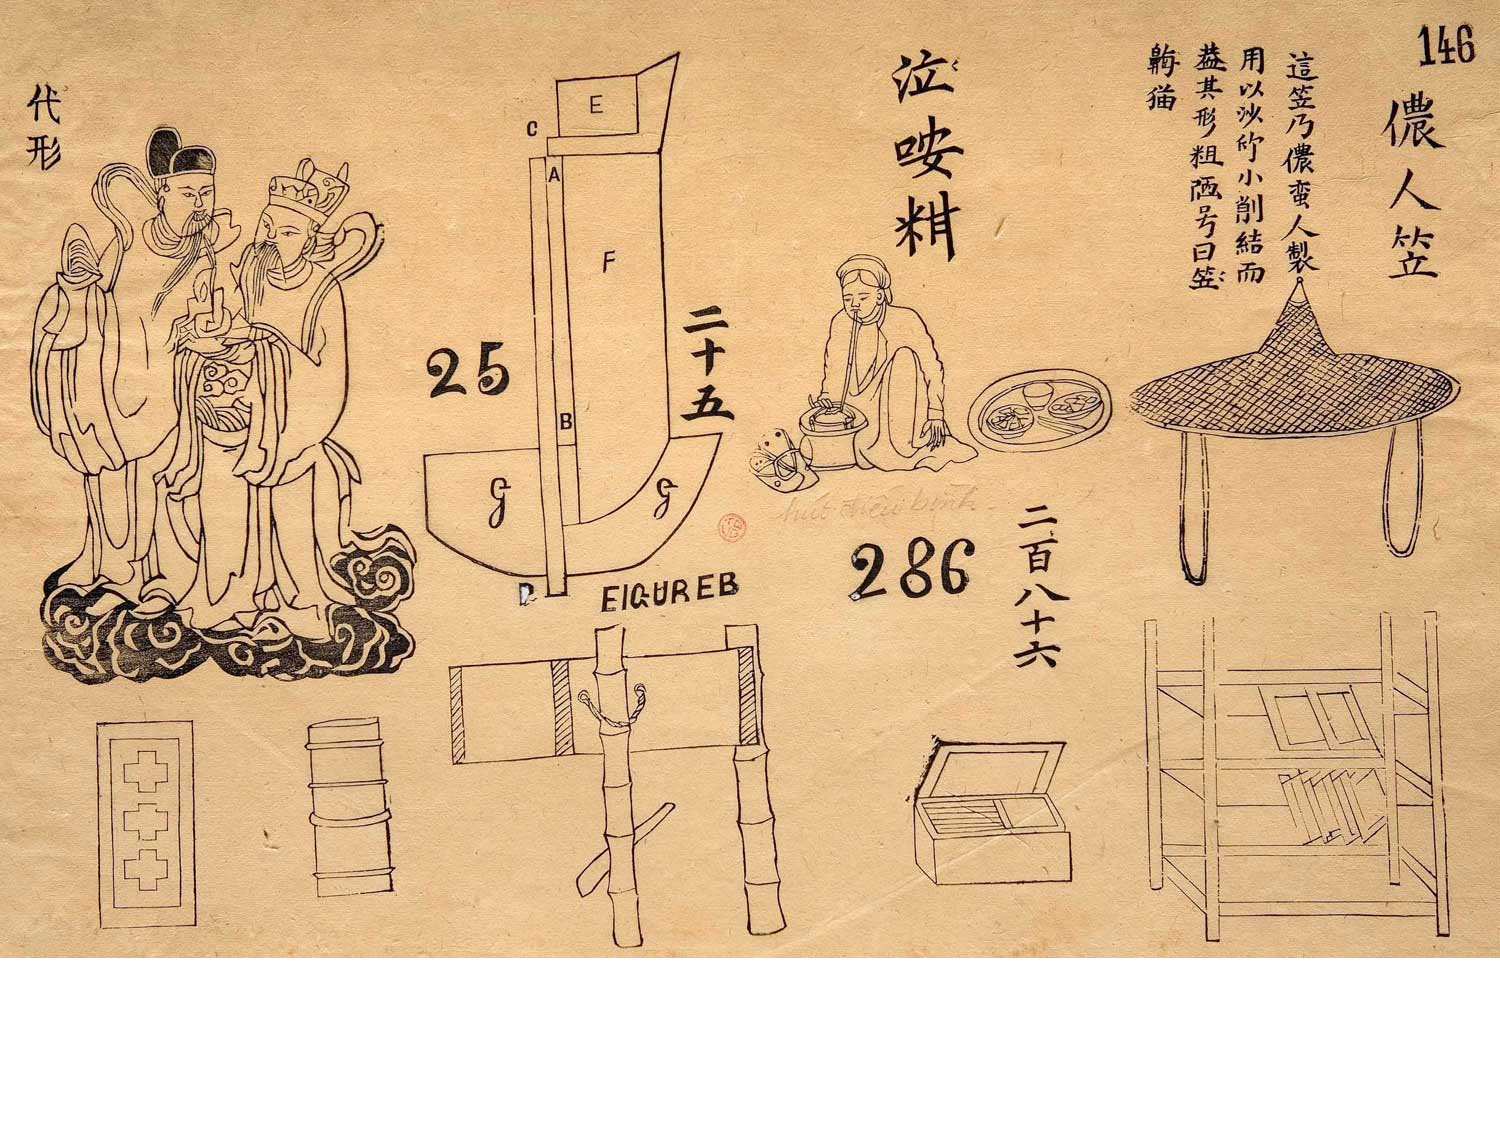 146
儂人笠
這笠乃儂蛮人製
用以沙竹小削結而
其形粗陋号曰笠
猫
泣咹𥺊
二百八十六
286
二十五
25
C
E
A
F
B
G
G
D
FIGURE B
代形